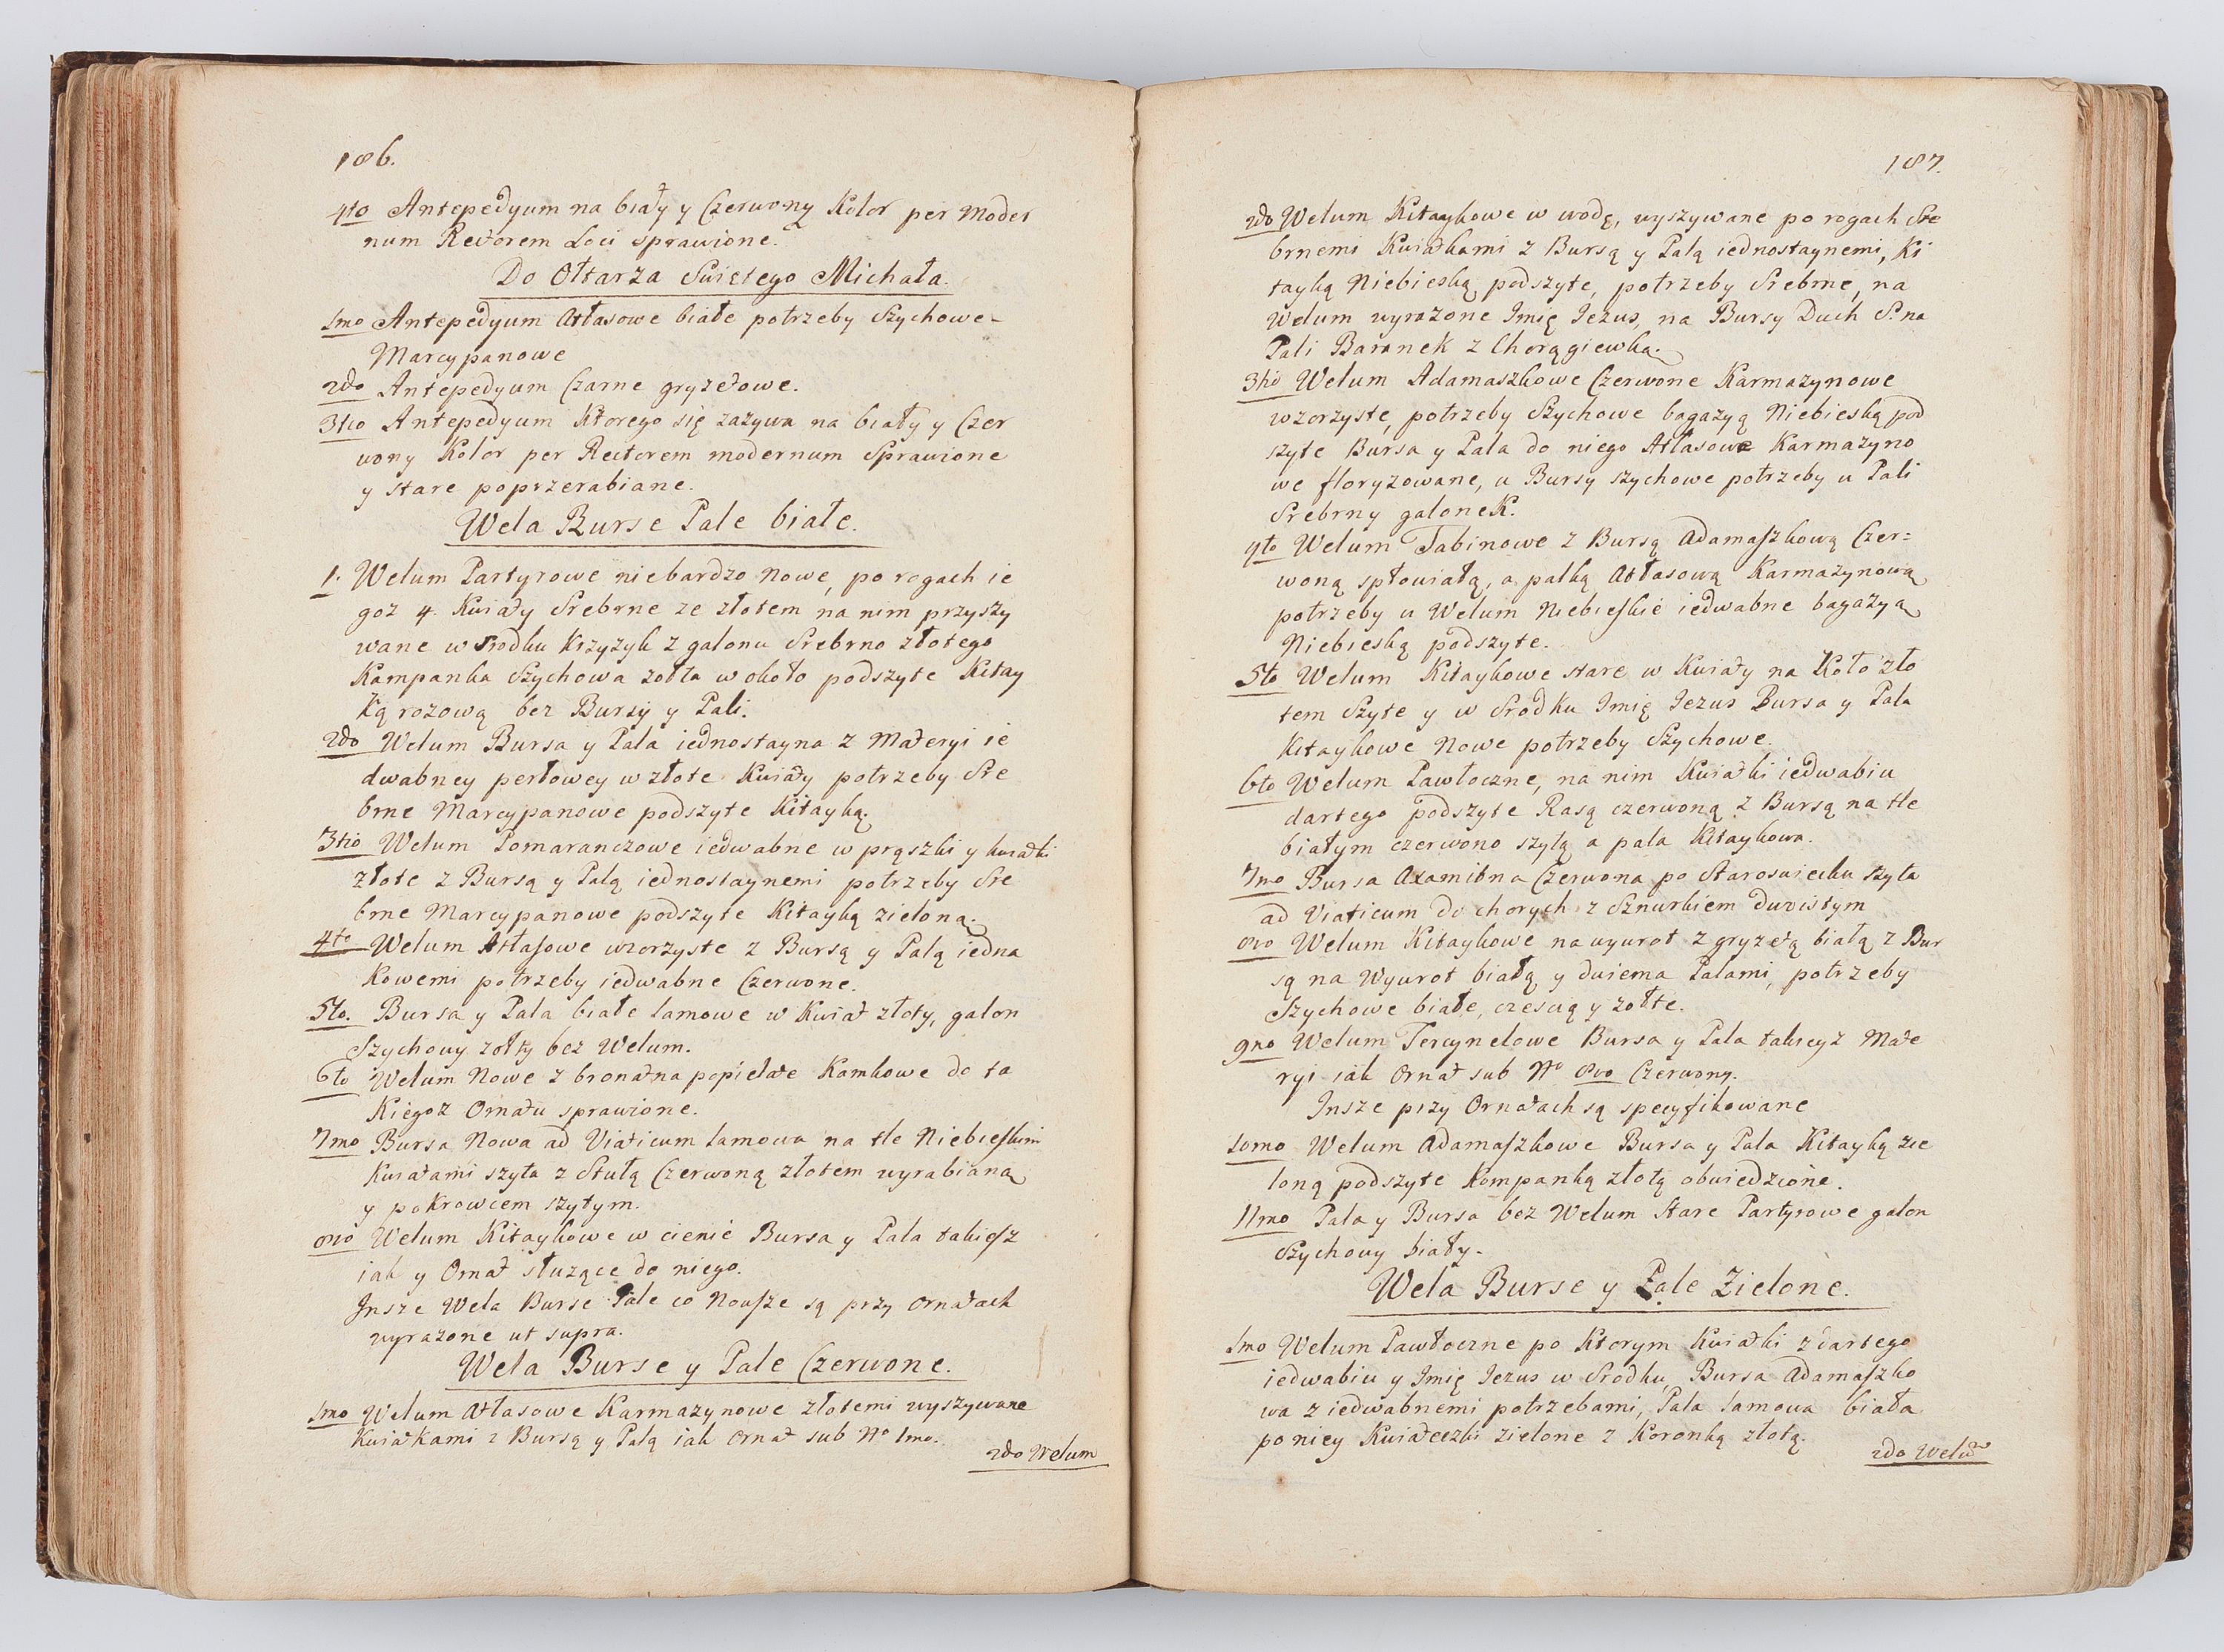 186.
4to Antepedyum na biały y Czerwony Kolor per Moder
num Rectorem Loci sprawione.
Do Ołtarza Swiętego Michała.
1mo Antepedyum Atłasowe białe potrzeby Szychowe
Marcypanowe
2do Antepedyum Czarne gryzetowe.
3tio Antepedyum Ktorego się zazywa na biały y Czer
wony Kolor per Rectorem modernum Sprawione
y stare poprzerabiane.
Wela Burse Pale białe.
1. Welum Partyrowe niebardzo Nowe, po rogach ie
goz 4. Kwiaty Srebrne ze złotem na nim przyszy
wane w srodku Krzyzyk z galonu Srebrno złotego
Kampanka Szychowa zołta w około podszyte Kitay
Ką rozową bez Bursy y Pali.
2do Welum Bursa y Pala iednostayna z Materyi ie
dwabney perłowey w złote Kwiaty potrzeby Sre
brne Marcypanowe podszyte Kitayką.
3tio Welum Pomaranczowe iedwabne w prąszki y kwiatki
złote z Bursą y Palą iednostaynemi potrzeby Sre
brne Marcypanowe podszyte Kitayką zieloną.
4to Welum Atłasowe wzorzyste z Bursą y Palą iedna
Kowemi potrzeby iedwabne Czerwone.
5to. Bursa y Pala białe Lamowe w Kwiat złoty, galon
Szychowy zołty bez Welum.
6to Welum Nowe z bronatna popielate Kamkowe do ta
Kiegoz Ornatu sprawione.
7mo Bursa Nowa ad Viaticum Lamowa na tle Niebieskim
Kwiatami szyta z Stułą Czerwoną złotem wyrabianą
y pokrowcem szytym.
8vo Welum Kitaykowe w cienie Bursa y Pala takiesz
iak y Ornat słuzące do niego.
Insze Wela Burse Pale co Nowsze są przy Ornatach
wyrazone ut supra.
Wela Burse y Pale Czerwone.
1mo Welum Atłasowe Karmazynowe złotemi wyszywane
Kwiatkami z Bursą y Palą iak Ornat sub No 1mo.
2do Welum
187.
2do Welum Kitaykowe w wodę, wyszywane po rogach Sre
brnemi Kwiatkami z Bursą y Palą iednostaynemi, Ki
tayką Niebieską podszyte, potrzeby Srebrne, na
Welum wyrazone Imię Iezus, na Bursy Duch S. na
Pali Baranek z Chorągiewką.
3tio Welum Adamaszkowe Czerwone Karmazynowe
wzorzyste, potrzeby Szychowe bagazyą Niebieską pod
szyte Bursa y Pala do niego Atłasowe Karmazyno
we floryzowane, u Bursy szychowe potrzeby u Pali
Srebrny galonek.
4to Welum Tabinowe z Bursą Adamaszkową Czer=
woną spłowiałą, a palką Atłasową Karmazynową
potrzeby u Welum Niebieskie iedwabne bagazyą
Niebieską podszyte.
5to Welum Kitaykowe stare w Kwiaty na Koło zło
tem Szyte y w Srodku Imię Iezus Bursa y Pala
Kitaykowe Nowe potrzeby Szychowe.
6to Welum Pawłoczne, na nim Kwiatki iedwabiu
dartego podszyte Rasą czerwoną z Bursą na tle
białym czerwono szytą a pala Kitaykowa.
7mo Bursa Axamitna Czerwona po Staroswiecku szyta
ad Viaticum do chorych z Sznurkiem dwoistym
8vo Welum Kitaykowe na wywrot z gryzetą białą z Bur
są na Wywrot białą y dwiema Palami, potrzeby
Szychowe białe, czescią y zołte.
9no Welum Tercynelowe Bursa y Pala takieyz Mate
ryi iak Ornat sub No 8vo Czerwony.
Insze przy Ornatach są specyfikowane
10mo Welum Adamaszkowe Bursa y Pala Kitayką zie
loną podszyte Kompanką złotą obwiedzione.
11mo Pala y Bursa bez Welum Stare Partyrowe galon
Szychowy biały.
Wela Burse y Pale Zielone.
1mo Welum Pawłoczne po Ktorym Kwiatki z dartego
iedwabiu y Imię Iezus w Srodku, Bursa Adamaszko
wa z iedwabnemi potrzebami, Pala Lamowa biała
po niey Kwiateczki zielone z Koronką złotą.
2do Welū